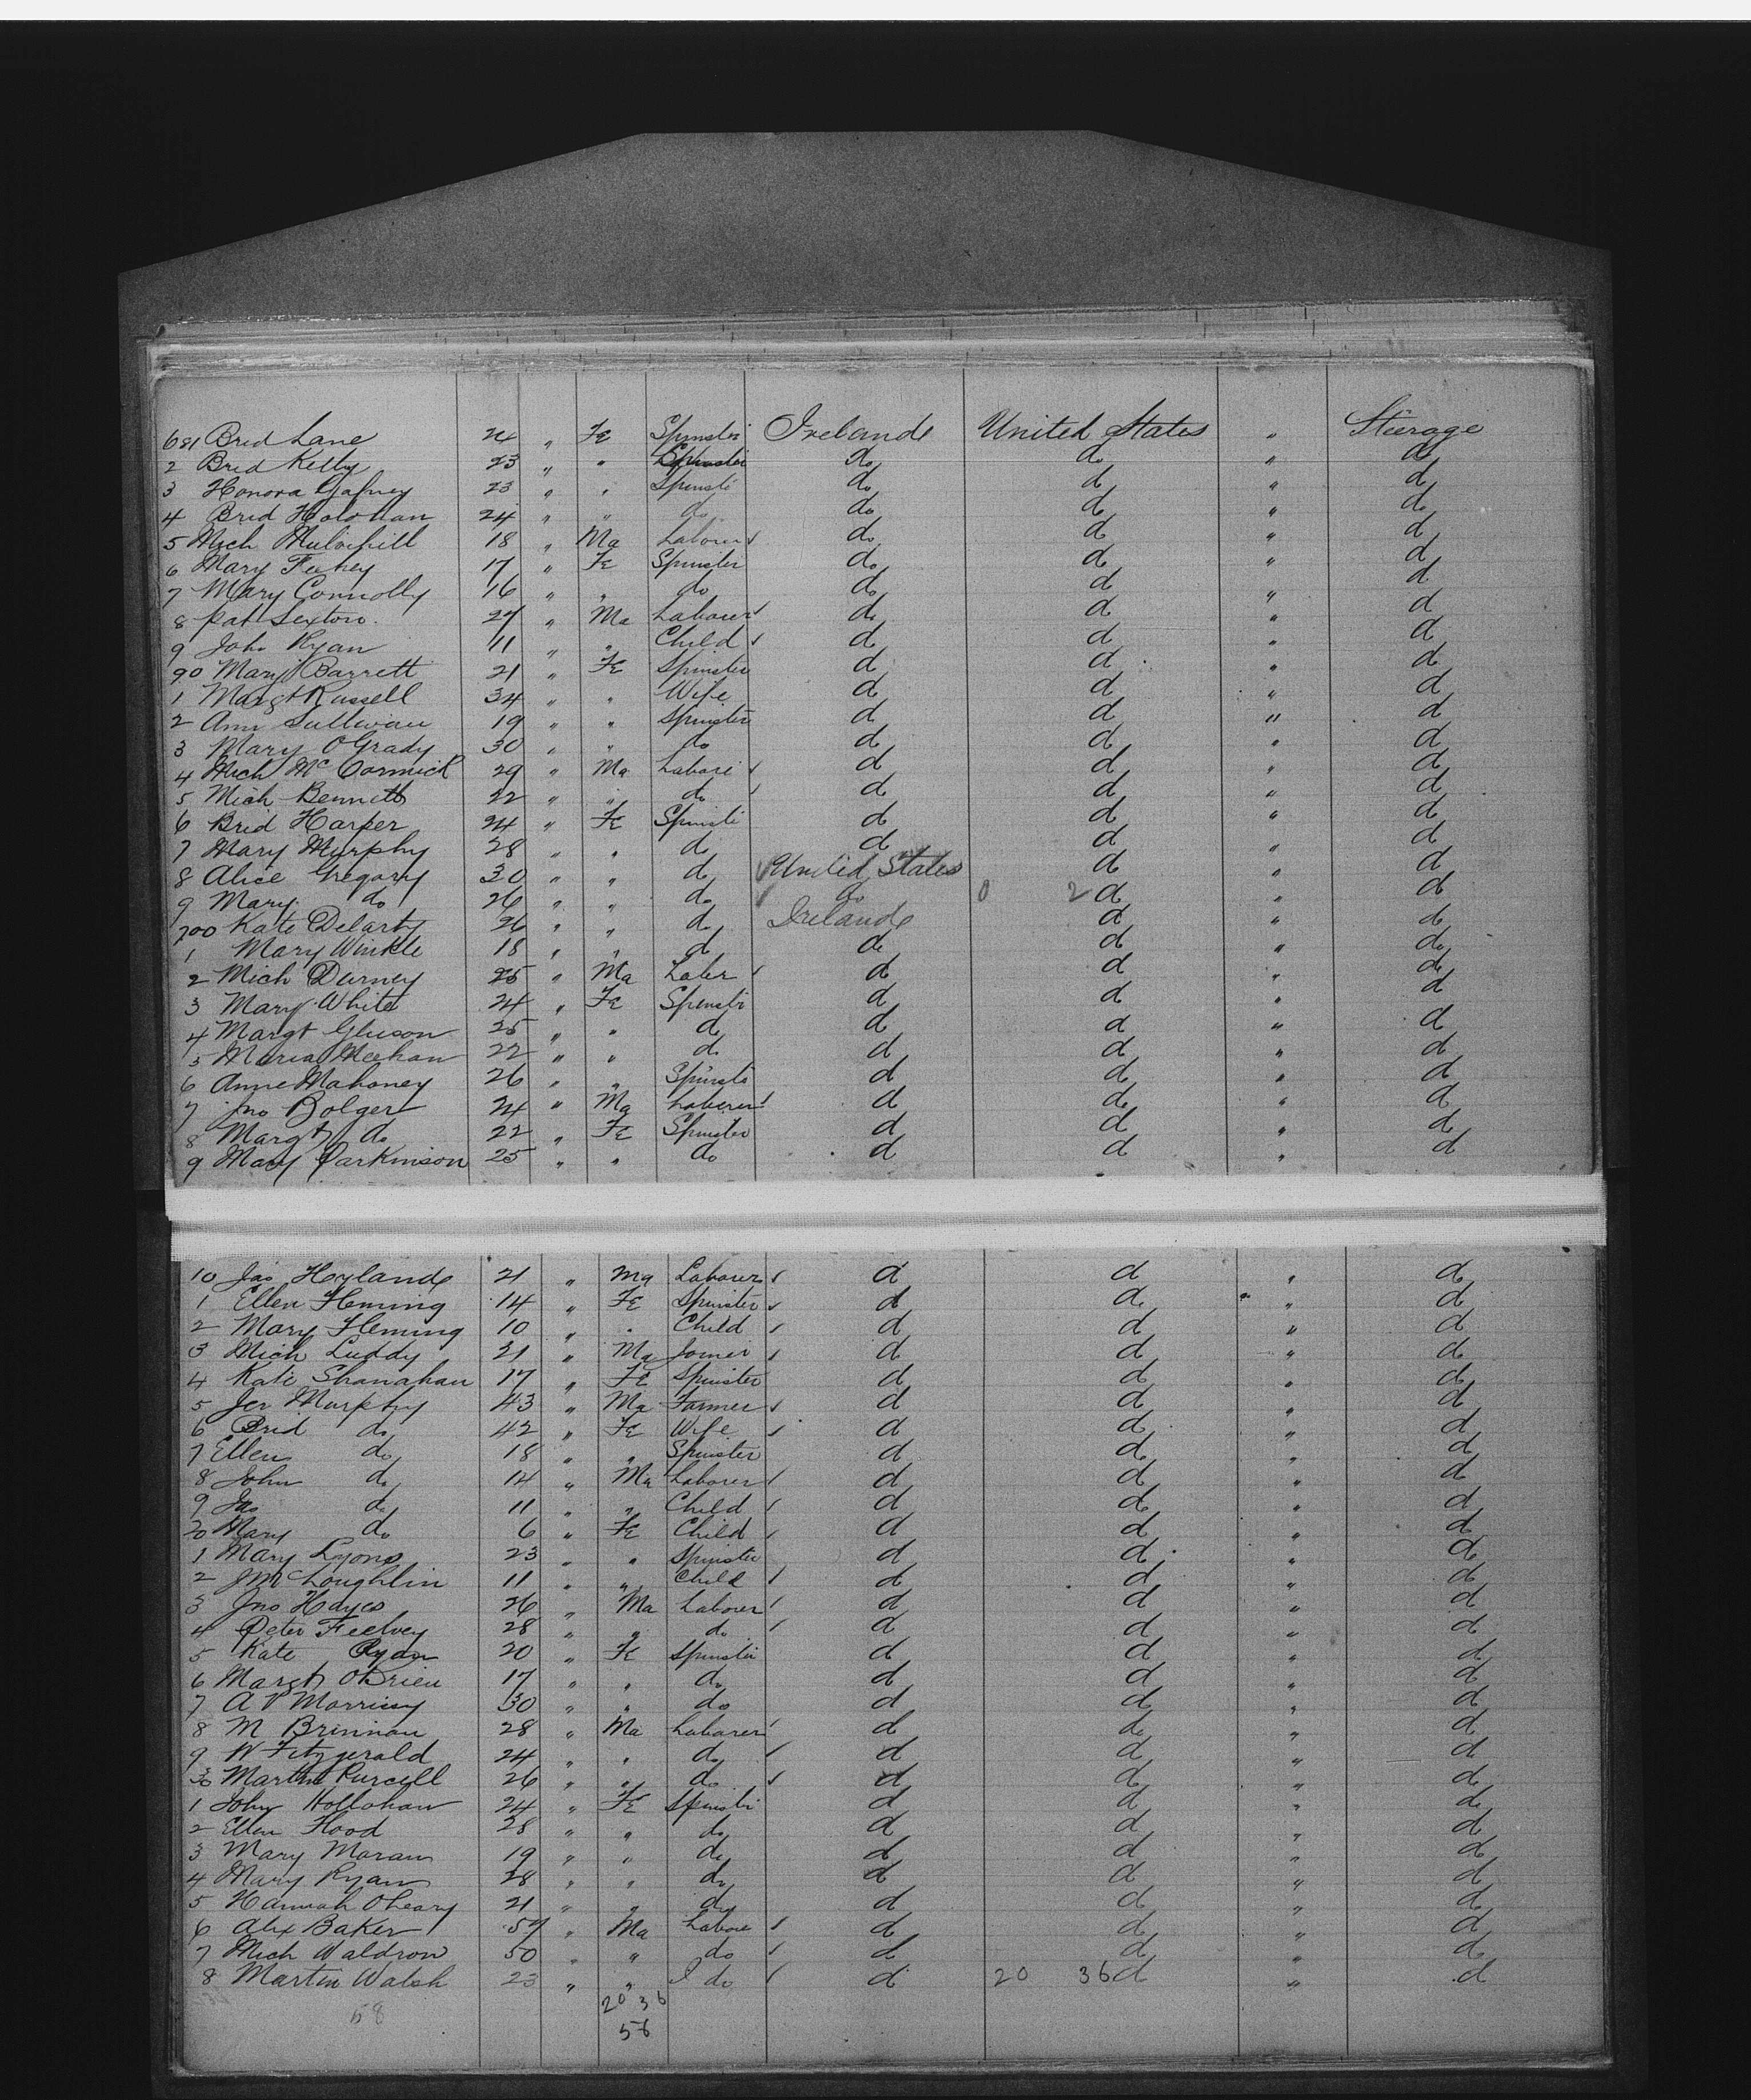 681 Brid Lane 24 " Fe Spinster Ireland United States " Steerage
2 Brid Kelly 23 " " Spinster do do " do
3 Honora Gafney 23 " " Spinste do do " do
4 Brid Holohan 24 " " do do do " do
5 Mich Mulvihill 18 " Ma Laborer do do " do
6 Mary Feehey 17 " Fe Spinster do do " do
7 Mary Connolly 16 " " do do do " do
8 Pat Sexton 27 " Ma Laborer do do " do
9 John Ryan 11 " " Child do do " do
90 Mary Barrett 21 " Fe Spinster do do " do
1 Margt Russell 34 " " Wife do do " do
2 Ann Sullivan 19 " " Spinster do do " do
3 Mary OGrady 30 " " do do do " do
4 Mich McCormick 29 " Ma Labore do do " do
5 Mich Bennett 22 " " do do do " do
6 Brid Harper 24 " Fe Spinste do do " do
7 Mary Murphy 28 " " do do do " do
8 Alice Gregory 30 " " do United States do " do
9 Mary do 26 " " do do 0 2 do " do
700 Kate Delarty 26 " " do Ireland do " do
1 Mary Winkle 18 " " do do do " do
2 Mich Durney 25 " Ma Laber do do " do
3 Mary White 24 " Fe Spinste do do " do
4 Margt Gleeson 25 " " do do do " do
5 Maria Meehan 22 " " do do do " do
6 Anne Mahoney 26 " " Spinste do do " do
7 Jno Bolger 24 " Ma Laborer do do " do
8 Margt do 22 " Fe Spinster do do " do
9 Mary Parkinson 25 " " do do do " do
10 Jas Hyland 21 " Ma Laborer do do " do
1 Ellen Fleming 14 " Fe Spinster do do " do
2 Mary Fleming 10 " " Child do do " do
3 Mich Luddy 21 " Ma Joiner do do " do
4 Kate Shanahan 17 " Fe Spinster do do " do
5 Jer Murphy 43 " Ma Farmer do do " do
6 Brid do 42 " Fe Wife do do " do
7 Ellen do 18 " " Spinster do do " do
8 John do 14 " Ma Laborer do do " do
9 Jas do 11 " " Child do do " do
20 Mary do 6 " Fe Child do do " do
1 Mary Lyons 23 " " Spinster do do " do
2 J McLoughlin 11 " " Child do do " do
3 Jno Hayes 26 " Ma Laborer do do " do
4 Peter 28 " " do do do " do
5 Kate Ryan 20 " Fe Spinster do do " do
6 Margt OBrien 17 " " do do do " do
7 A P Morrissy 30 " " do do do " do
8 M Brinnan 28 " Ma Laborer do do " do
9 W Fitzgerald 24 " " do do do " do
30 Martin Purcell 26 " " do do do " do
1 John Hollohan 24 " Fe Spinster do do " do
2 Ellen Hood 28 " " do do do " do
3 Mary Moran 19 " " do do do " do
4 Mary Ryan 28 " " do do do " do
5 Hannah OLeary 21 " " do do do " do
6 Alex Baker 57 " Ma Labore do do " do
7 Mich Waldron 50 " " do do do " do
8 Martin Walsh 23 " " do do 20 36 do " do
20 36
58 56